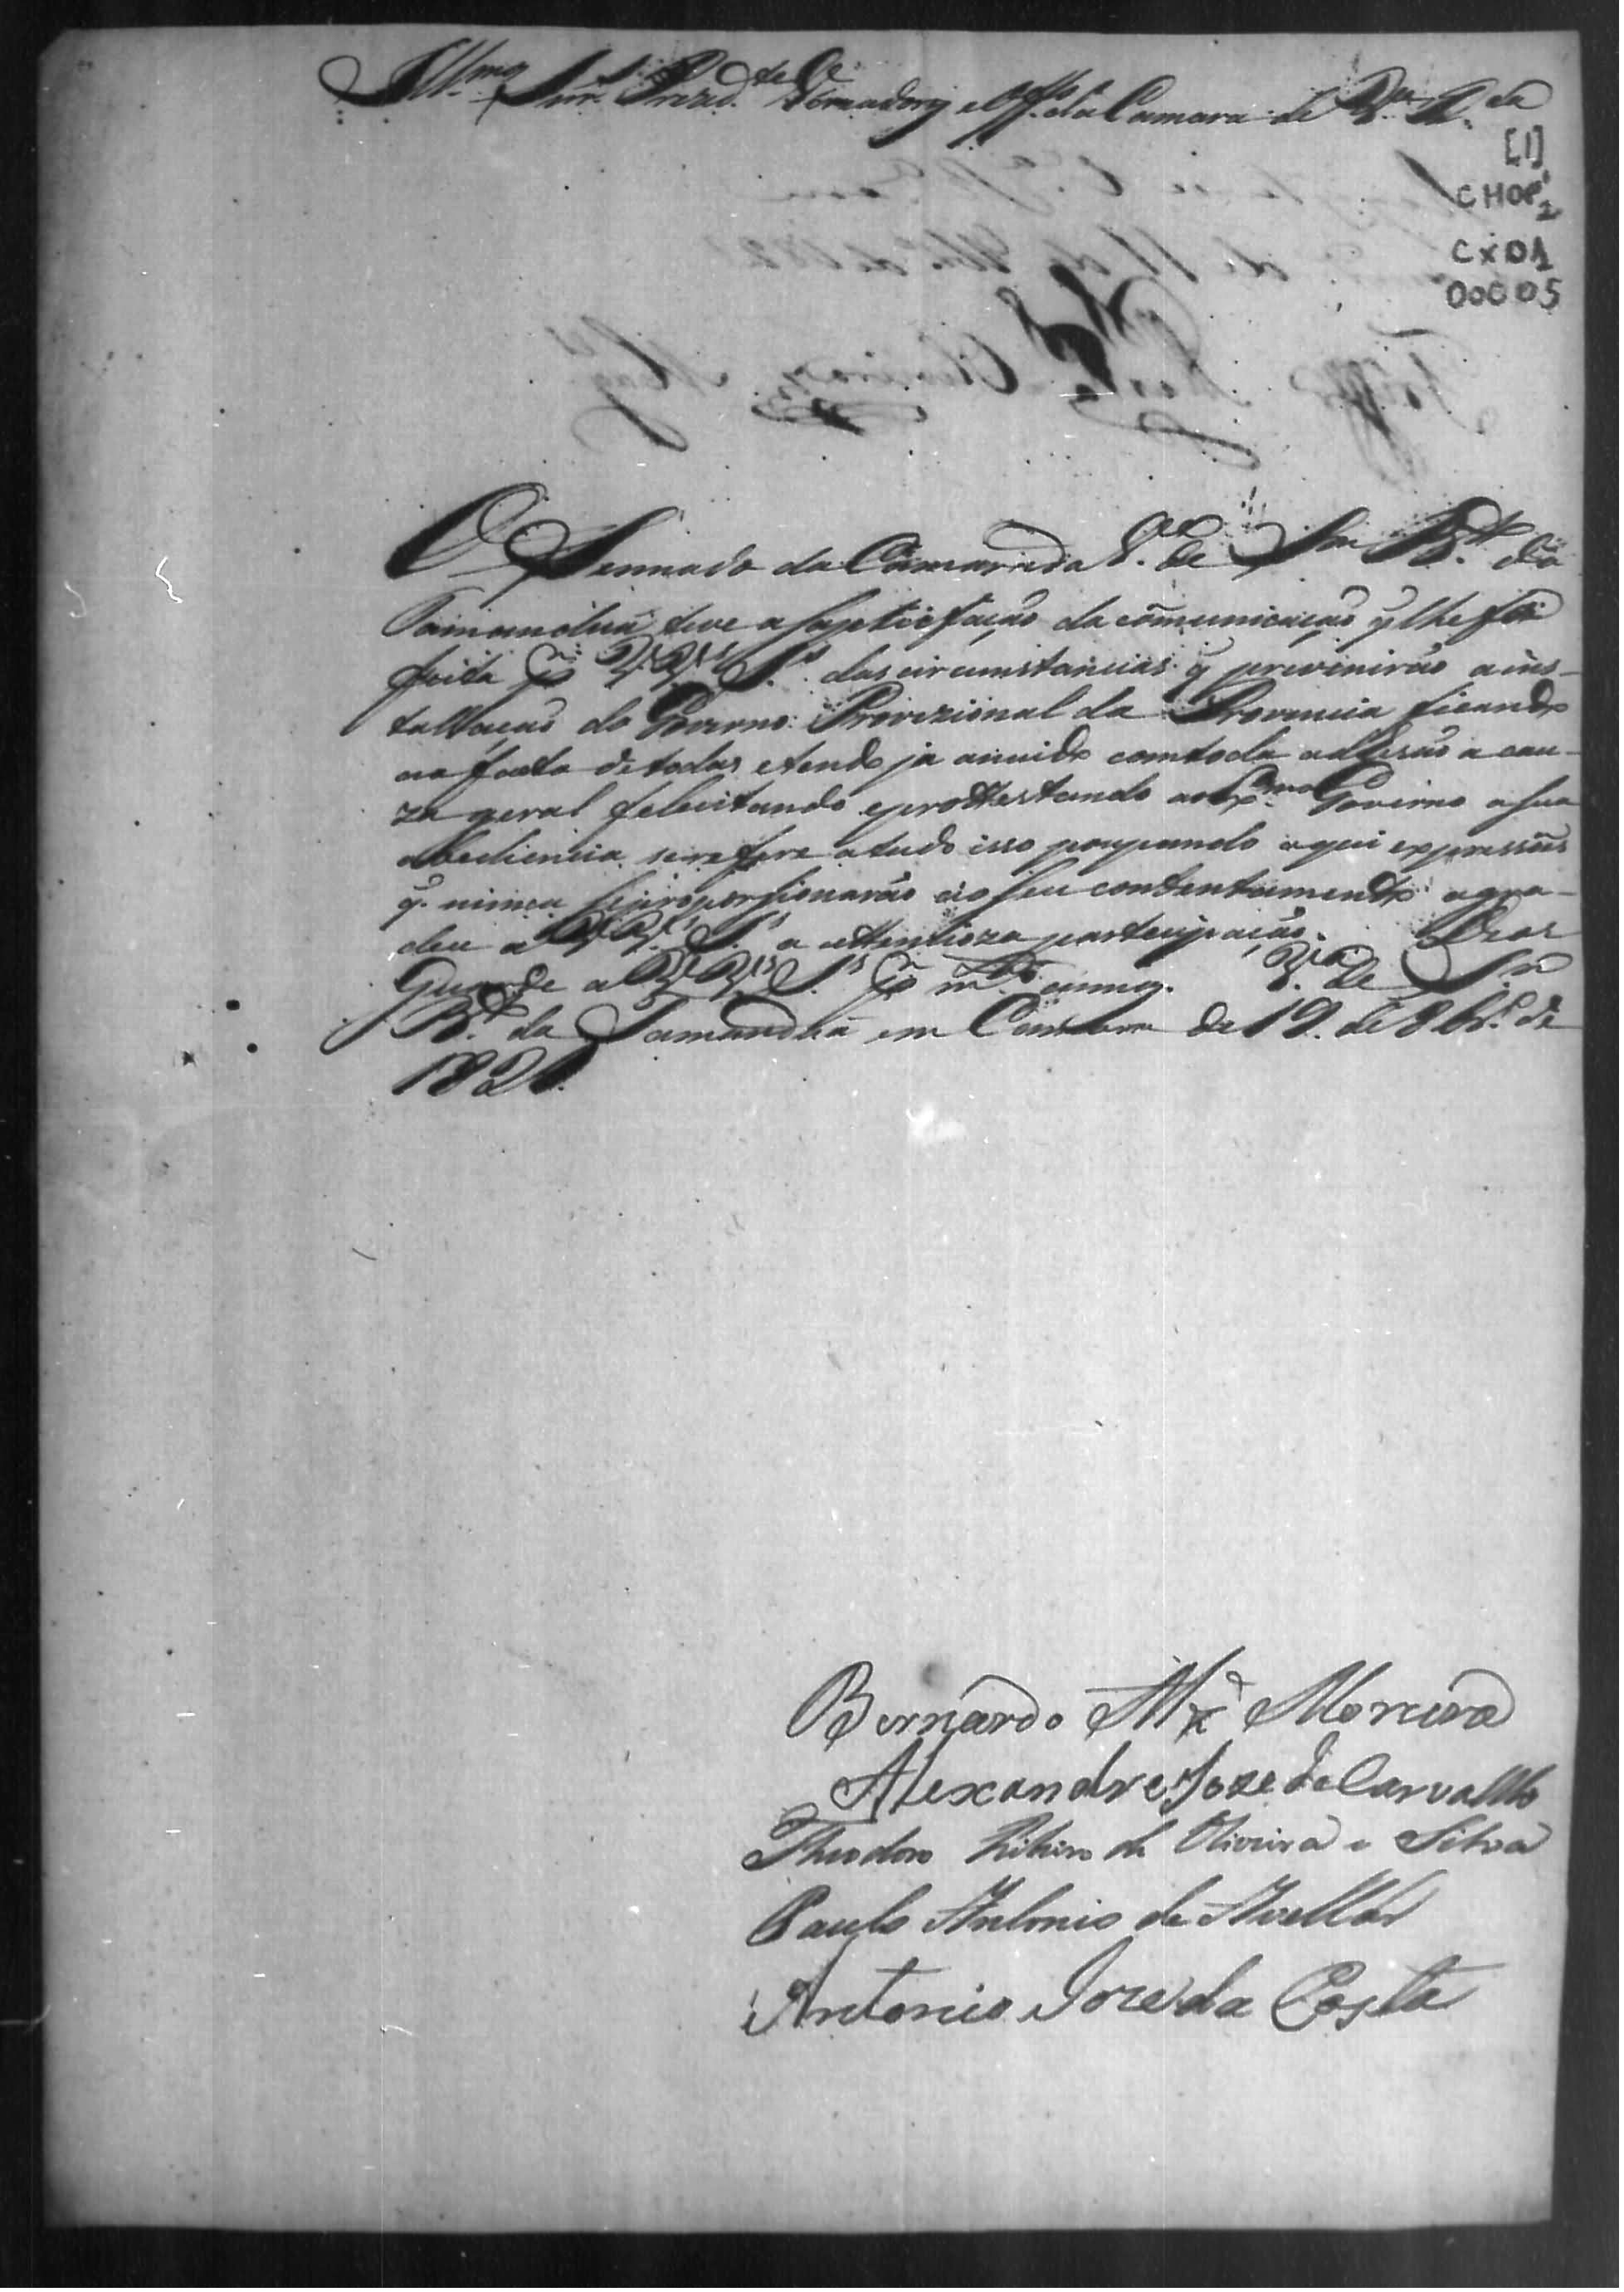 Ill.mos Snr.s Prezid.te Vereadores e Off.es da Camara de
[1]
CHOP1
2
CX01
00005
O Sennado da Camara da V.a de Sm Bt.o da
Tamanduá teve a saptisfação da cõmunicação q̃ lhe foi
feita pr VV. S.s das circumstancias q̃ previnirão a ins-
tallação do Governo Provizional da Provincia ficando
ao facto de todas, e tendo ja annuido com toda adhesão a cau-
za geral felicitando e prottestando ao Ex.mo Governo a sua
obediencia, se refere a tudo isso poupando aqui expressões
q. nunca se proporsionarão ao seu contentamento agra-
dece a VV. S.s a attencioza partecipação. Deos
Guarde a VV. S.s pr m.tos annos. V.a de Sm
Bt.o da Tamanduá em Camara de 19. de 8br.o de
1821.
Bernardo Moreira
Alexandre Joze de Carvalho
Theodoro Ribeiro de Oliveira e Silva
Paulo Antonio de Avellar
Antonio Joze da Costa